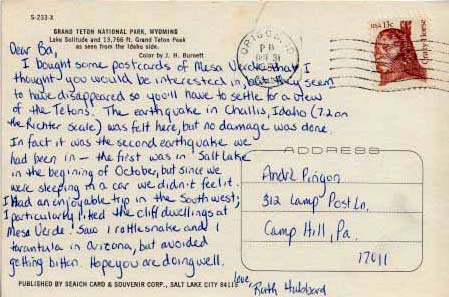 S-233-X
GRAND TETON NATIONAL PARK, WYOMING
Lake Solitude and 13,766 ft. Grand Teton Peak
as seen from the Idaho side.
Color by J. H. Burnett
USA 13c
Crazy Horse
PB
Dear Ba,
I bought some postcards of Mesa Verde that I
thought you would be interested in, but they seem
to have disappeared so you'll have to settle for a view
of the Tetons. The earthquake in Challis, Idaho (7.2 on
the Richter scale) was felt here, but no damage was done.
In fact it was the second earthquake we
had been in – the first was in Salt Lake
in the begining of October, but since we
were sleeping in a car we didn't feel it.
I had an enjoyable trip in the Southwest;
I particularly liked the cliff dwellings at
Mesa Verde. Saw 1 rattlesnake and 1
tarantula in Arizona, but avoided
getting bitten. Hope you are doing well.
love,
Ruth Hubbard
ADDRESS
André Pingon
312 Lamp Post Ln.
Camp Hill, Pa.
17011
PUBLISHED BY SEAICH CARD & SOUVENIR CORP., SALT LAKE CITY 84115